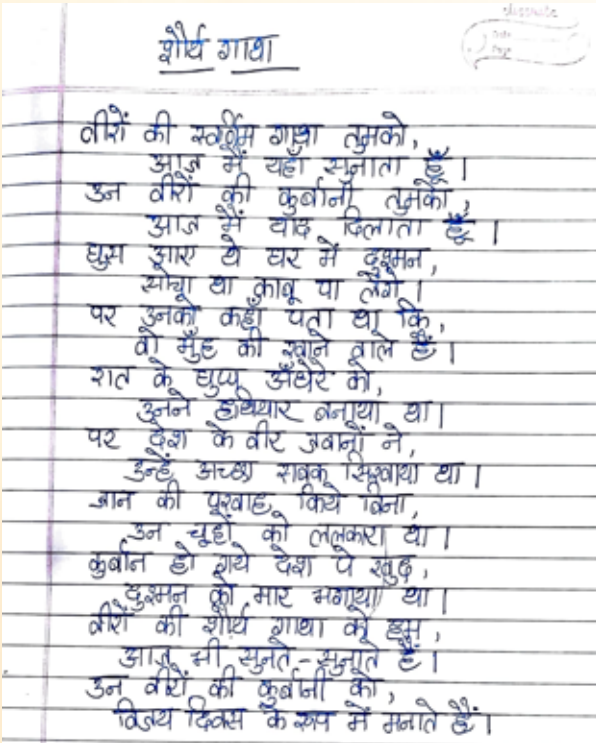 शौर्य गाथा
वीरों की स्वर्णिम गाथा तुमको,
आज मैं यहाँ सुनाता हूँ ।
उन वीरों की कुर्बानी तुमको,
आज मैं याद दिलाता हूँ ।
घुस आए थे घर में दुश्मन,
सोचा था काबू पा लेंगे ।
पर उनको कहाँ पता था कि,
वो मुँह की खाने वाले हैं ।
रात के घुप्प अँधेरे को,
उनने हथियार बनाया था ।
पर देश के वीर जवानों ने,
उन्हें अच्छा सबक सिखाया था ।
जान की परवाह किये बिना,
उन चूहों को ललकारा था ।
कुर्बान हो गये देश पे खुद,
दुश्मन को मार भगाया था ।
वीरों की शौर्य गाथा को हम,
आज भी सुनते-सुनाते हैं ।
उन वीरों की कुर्बानी को,
विजय दिवस के रूप में मनाते हैं ।
Date
Page